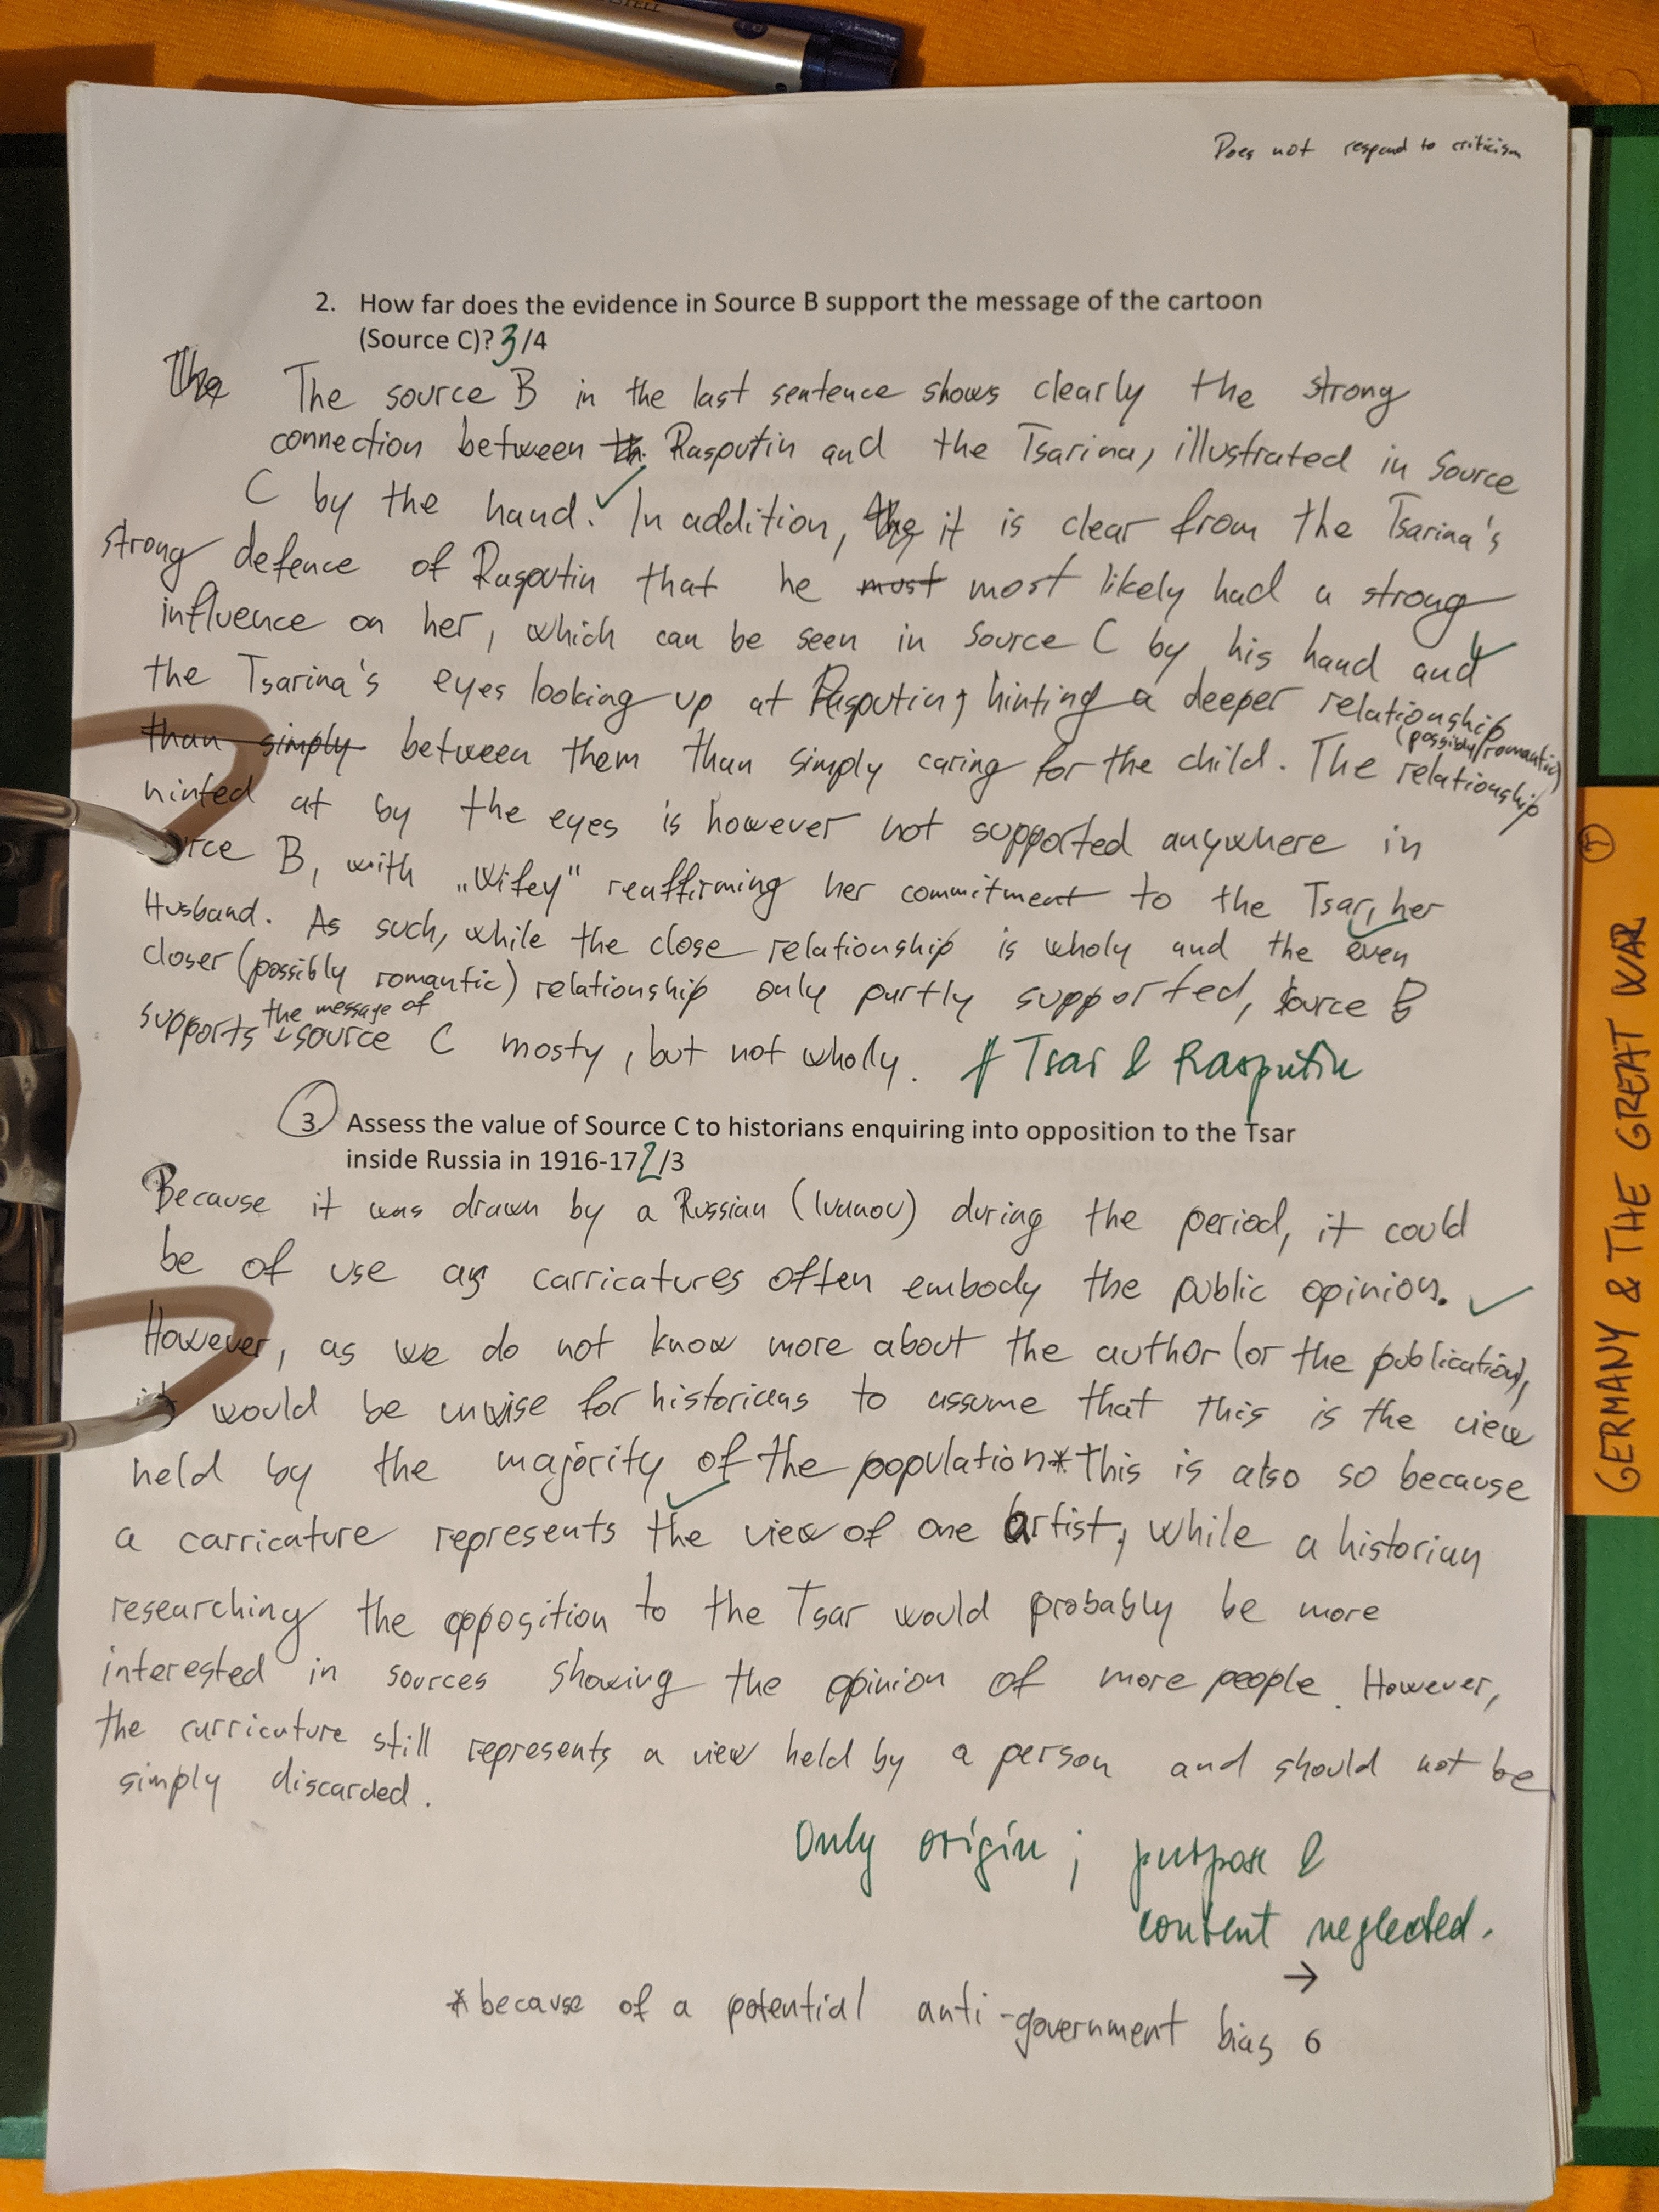 Does not respond to criticism
2. How far does the evidence in Source B support the message of the cartoon
(Source C)? 3/4
The The source B in the last sentence shows clearly the strong
connection between th Rasputin and the Tsarina, illustrated in Source
C by the hand. ✓ In addition, the it is clear from the Tsarina's
strong defence of Rasputin that he must most likely had a strong
influence on her, which can be seen in Source C by his hand and
the Tsarina's eyes looking up at Rasputin, hinting a deeper relationship
(possibly romantic)
than simply between them than simply caring for the child. The relationship
hinted at by the eyes is however not supported anywhere in
B, with „Wifey" reaffirming her commitment to the Tsar, her
Husband. As such, while the close relationship is wholy and the even
closer (possibly romantic) relationship only partly supported, Source B
the message of
supports source C mosty, but not wholly. Tsar & Rasputin
3 Assess the value of Source C to historians enquiring into opposition to the Tsar
inside Russia in 1916-17 2/3
Because it was drawn by a Russian (Ivanov) during the period, it could
be of use as carricatures often embody the public opinion. ✓
However, as we do not know more about the author (or the publication),
would be unwise for historians to assume that this is the view
held by the majority of the population* this is also so because
a carricature represents the view of one artist, while a historian
researching the opposition to the Tsar would probably be more
interested in sources showing the opinion of more people. However,
the carricature still represents a view held by a person and should not be
simply discarded.
Only origin; purpose &
content neglected.
→
*because of a potential anti-government bias 6
GERMANY & THE GREAT WAR